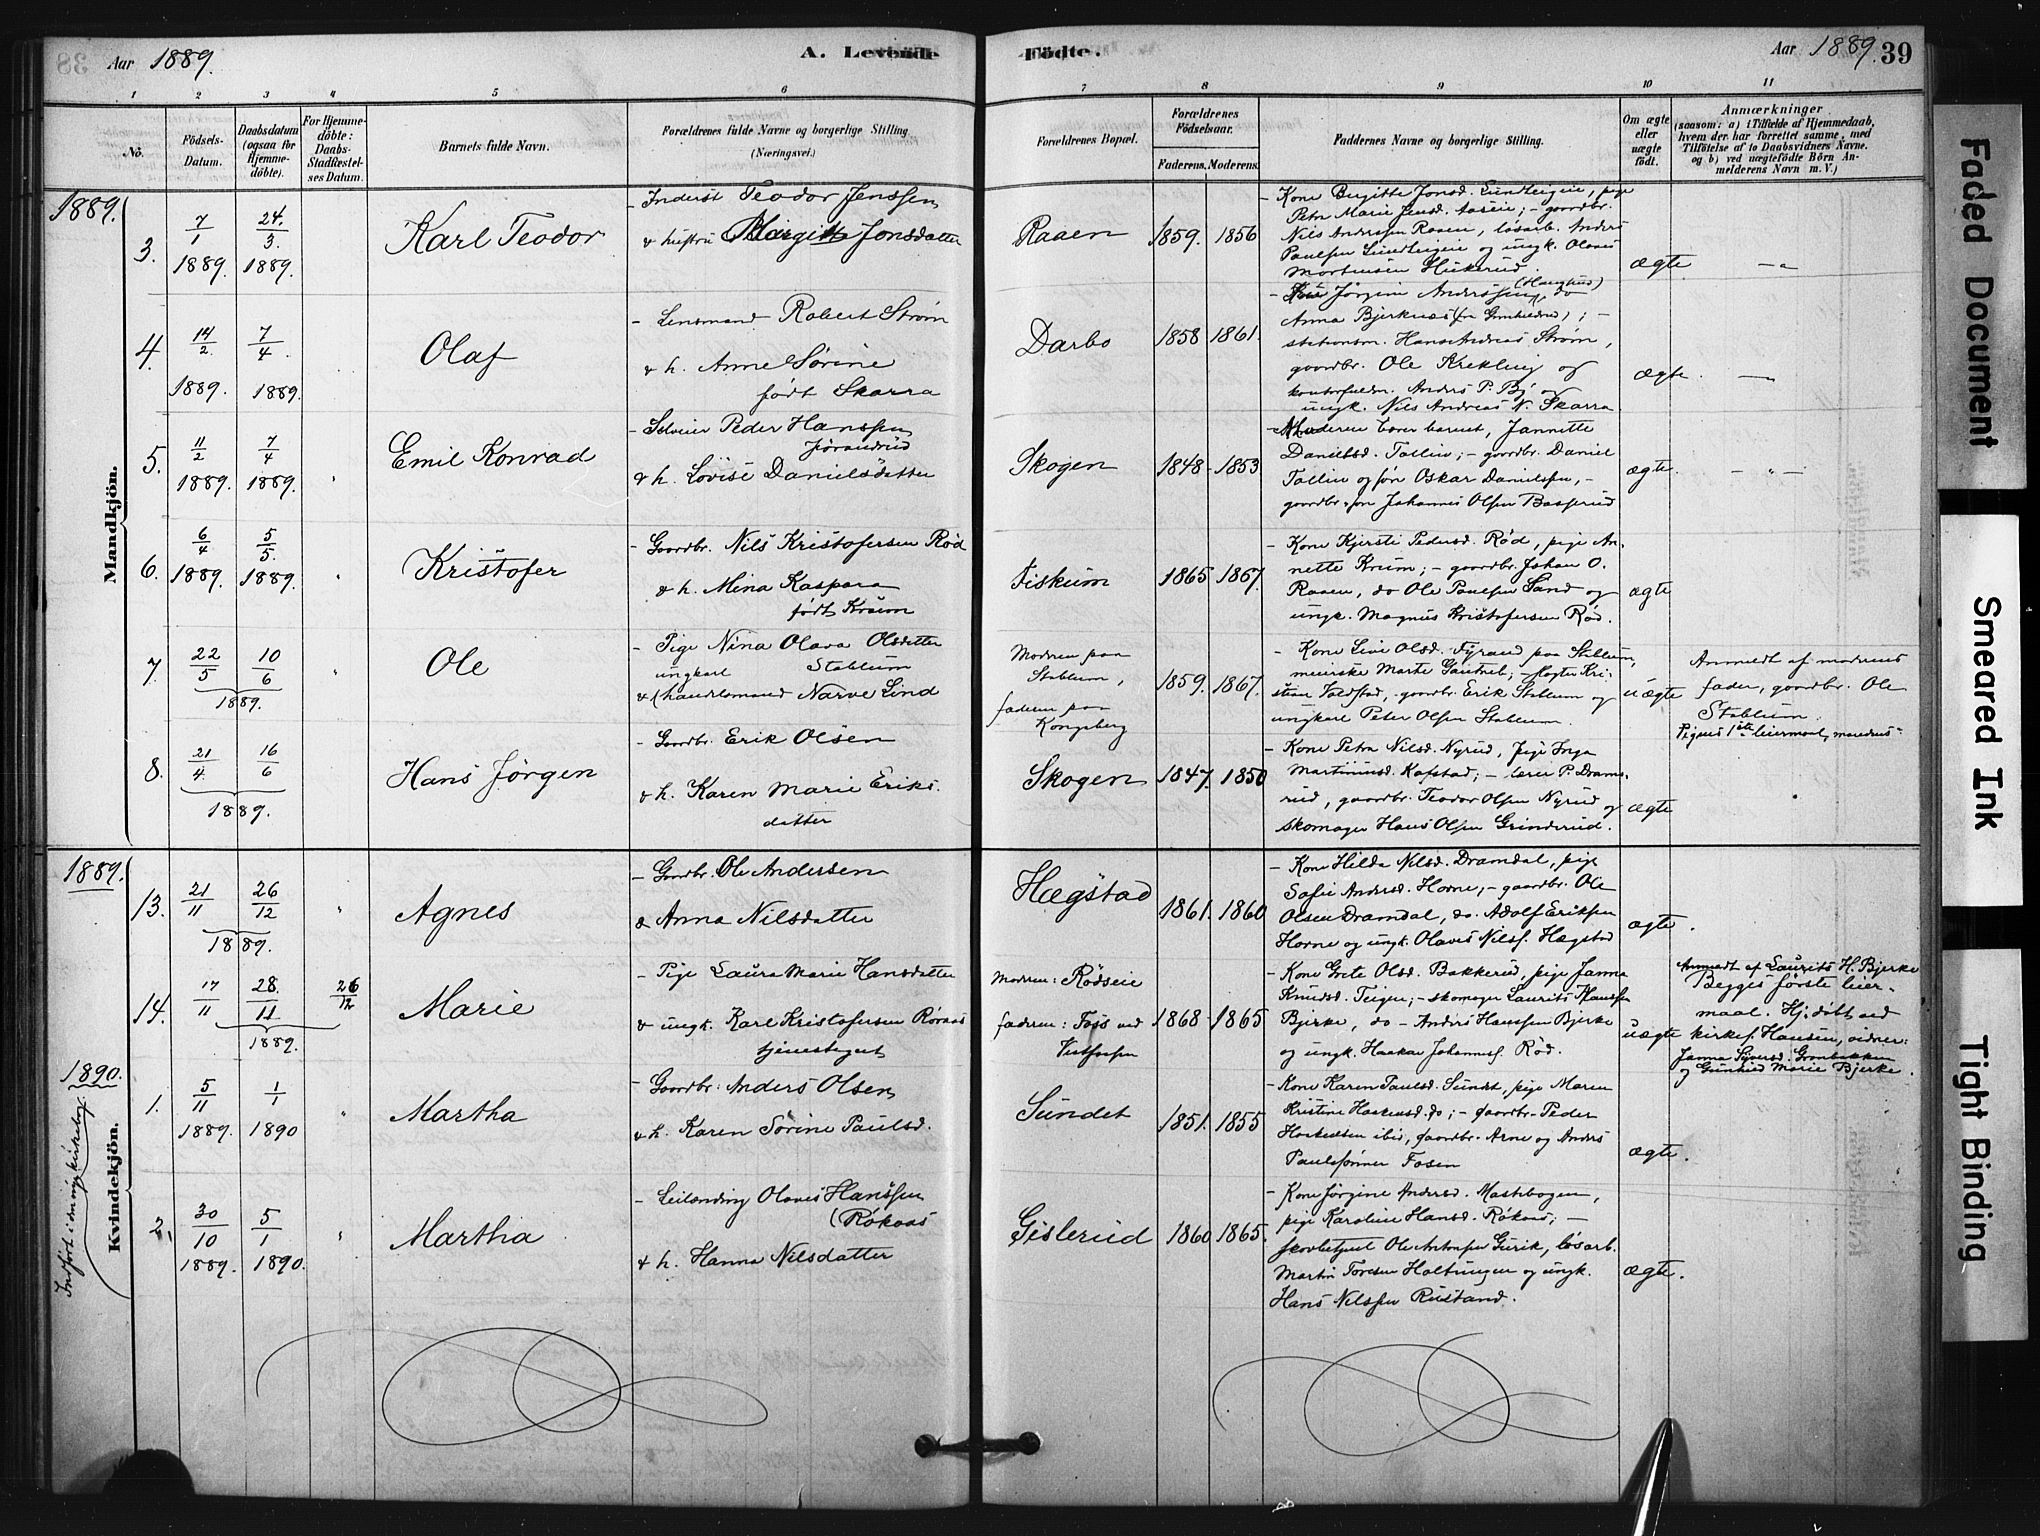 Aar 1889.
A. Levende Födte.
Aar 1889. 39
1 2 3 4 5 6 7 8 9 10 11
No.
Födsels-Datum.
Daabsdatum (ogsaa for Hjemme-döbte).
For Hjemme-döbte: Daabs-Stadfæstel-ses Datum.
Barnets fulde Navn.
Forældrenes fulde Navne og borgerlige Stilling (Næringsvei.)
Forældrenes Bopæl.
Forældrenes Födselsaar.
Faderens. Moderens.
Faddernes Navne og borgerlige Stilling.
Om ægte eller uægte födt.
Anmærkninger
(saasom: a) i Tilfælde af Hjemmedaab,
hvem der har forrettet samme, med
Tilföielse af to Daabsvidners Navne.
og b) ved uægtefödte Börn An-
melderens Navn m. V.)
Mandkjön.
1889.
3. 7/1 1889. 24/3. 1889.
Karl Teodor
- Inderst Teodor Jenssen
& hustru Birgitte Jonsdatter
Raaen
1859. 1856
Nils Anderssen Raaen, løsarb. Anders
ægte
4. 14/2. 1889. 7/4. 1889.
Olaf
- Lensmand Robert Strøm
& h. Anne Sørine
født Skarra
Darbo
1858 1861.
- Kone Jørgine Anderssen, do
stationsm. Hans Andreas Strøm,
gaardbr. Ole Krekling og
ungk. Nils Andreas N. Skarra
ægte.
5. 11/2 1889. 7/4 1889.
Emil Konrad
- Selveier Peder Hanssen
Jørandrud
& h. Lovise Danielsdatter
Skogen
1848 1853
- Moderen bærer barnet, Jannette
Danielsd. Tollin; - gaardbr. Daniel
Tollin og søn Oskar Danielssen, -
gaardbr.søn Johannes Olsen Basserud
ægte.
6. 6/4 1889. 5/5. 1889.
Kristofer
- Gaardbr. Nils Kristofersen Rød
& h. Mina Kaspara
født Krum
Fiskum
1865 1867.
- Kone Kjersti Pedersd. Rød, pige An-
nette Krum; - gaardbr. Johan O.
Raaen, do Ole Paulsen Sand og
ungk. Magnus Kristofersen Rød.
ægte
7. 22/5 10/6 1889.
Ole
- Pige Nina Olava Olsdatter
Stablum
ungkarl
& (handlsmand Narve Lind
Modren paa
Stablum,
faderen paa
Kongsberg
1859. 1867.
- Kone Live Olsd. Fyrand paa Stablum,
meierske Marte Gautneb; - slagter Kri-
stian Foldstad, gaardbr. Erik Stablum og
ungkarl Peter Olsen Stablum.
uægte
Anmeldt af modrens
fader, gaardbr. Ole
Stablum.
Pigens 1ste leiermaal, mandens -
8. 21/4. 16/6 1889.
Hans Jørgen
- Gaardbr. Erik Olsen
& h. Karen Marie Eriks-
datter
Skogen
1847. 1850
- Kone Petra Nilsd. Nyrud, pige Inga
Martinusd. Kofstad; - lærer P. Drams-
rud, gaardbr. Teodor Olsen Nyrud og
skomager Hans Olsen Grinderud.
ægte
Kvindekjön.
1889.
13. 21/11 26/12 1889.
Agnes
- Gaardbr. Ole Andersen
& Anna Nilsdatter
Hægstad
1861. 1860
- Kone Hilda Nilsd. Dramdal, pige
Sofie Andersd. Horne; - gaardbr. Ole
Olsen Dramdal, do. Adolf Eriksen
Horne og ungk. Olaves Nilss. Hægstad
ægte.
14. 17/11 28./11 1889. 26/12
Marie
- Pige Laura Marie Hansdatter
& ungk. Karl Kristofersen Röraas
tjenestegut
Modren: Rødseie
faderen: Foss ved
Vestfossen
1868 1865
- Kone Grete Olsd. Bakkerud, pige Janna
Knudsd. Teigen; - skomager Laurits Hanssen
Bjerke, do - Anders Hanssen Bjerke
og ungk. Haakon Johanness. Rød.
uægte
Anmeldt af Laurits H. Bjerke
Begges første leier-
maal. Hj.døbt ved
kirkes. Hansen, vidner:
Janna Syversd. Grønbakken
og Gunhild Marie Bjerke.
1890.
Indført i den nye kirkebog.
1. 5/11 1889. 1/1 1890
Martha
- Gaardbr. Anders Olsen
& h. Karen Sørine Paulsd.
Sundet
1851. 1855
- Kone Karen Paulsd. Sundet, pige Maren
Kristine Haakensd. do; - Gaardbr. Peder
Haakensen ibid, Gaardbr. Arne og Anders
Paulssønner Fosen
ægte.
2. 30/10 1889. 5/1 1890.
Martha
- Leilænding Olaves Hanssen
(Røkaas
& h. Hanna Nilsdatter
Gislerud
1860 1865.
- Kone Jørgine Andersd. Mastebogen,
pige Karoline Hansd. Røkaas; -
skovbetjent Ole Antonsen Gurik, løsarb.
Martin Toresen Holtungen og ungk.
Hans Nilssen Rustand.
ægte.
Faded Document
Smeared Ink
Tight Binding